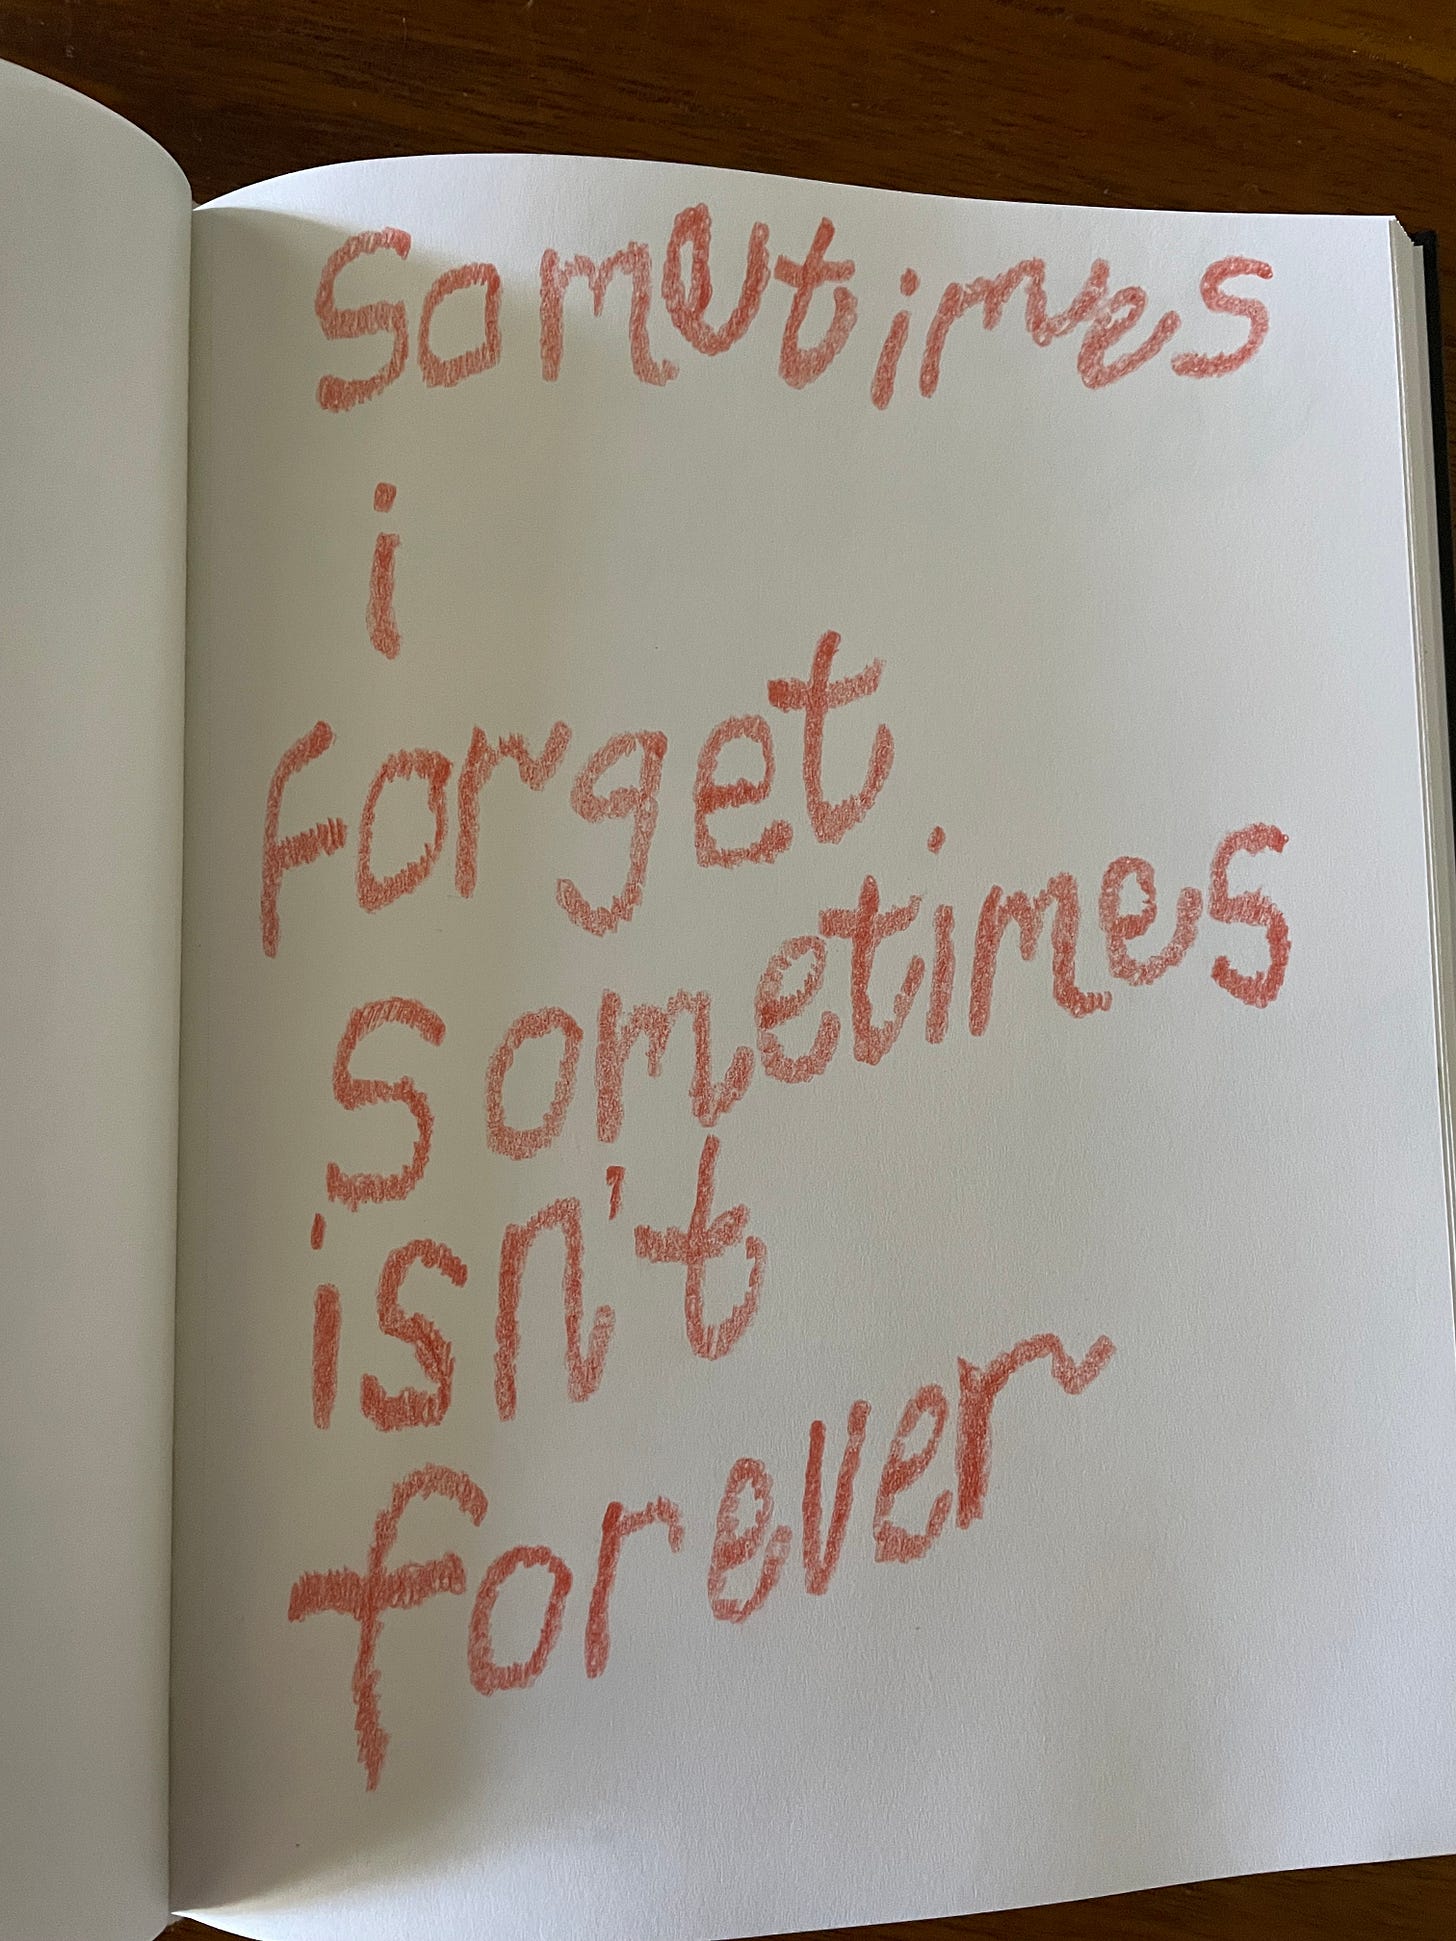 Sometimes
i
forget
Sometimes
isn't
forever